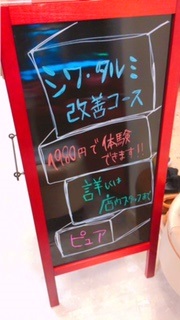 シワ・タルミ
改善コース
1000円で体験
できます!!
詳しくは
店内スタッフまで
ピュア